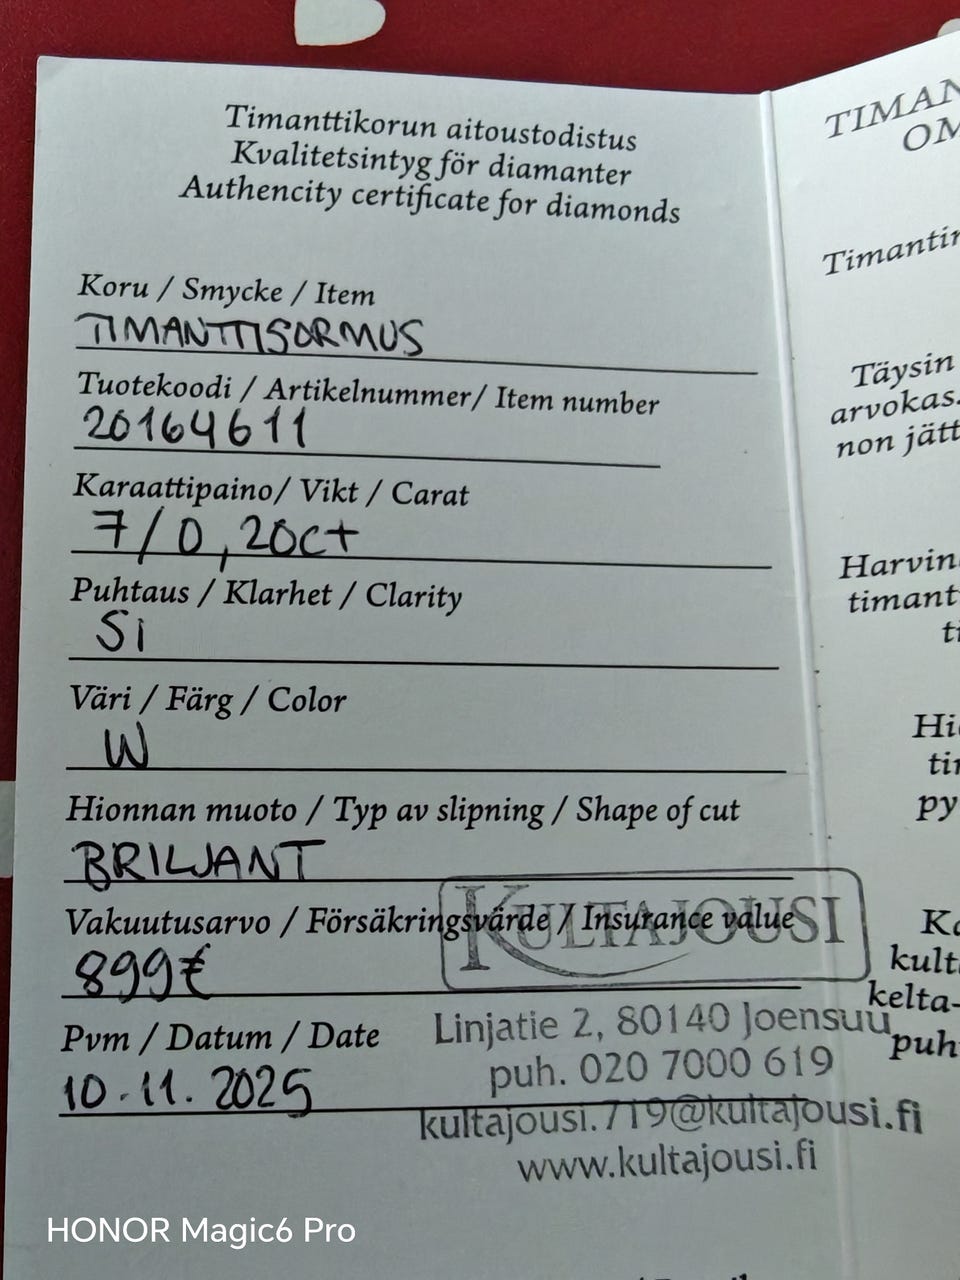 Timanttikorun aitoustodistus
Kvalitetsintyg för diamanter
Authencity certificate for diamonds
Koru / Smycke / Item
TIMANTTISORMUS
Tuotekoodi / Artikelnummer/ Item number
20164611
Karaattipaino/ Vikt / Carat
7/0,20ct
Puhtaus / Klarhet / Clarity
Si
Väri / Färg / Color
W
Hionnan muoto / Typ av slipning / Shape of cut
BRILJANT
Vakuutusarvo / Försäkringsvärde / Insurance value
KULTAJOUSI
899€
Linjatie 2, 80140 Joensuu
Pvm / Datum / Date
puh. 020 7000 619
10.11.2025
kultajousi.719@kultajousi.fi
www.kultajousi.fi
TIMAN
OM
Timantin
Täysin
arvokas.
non jätt
Harvin
timant
ti
Hio
tin
py
Ka
kult
kelta-
puh
HONOR Magic6 Pro